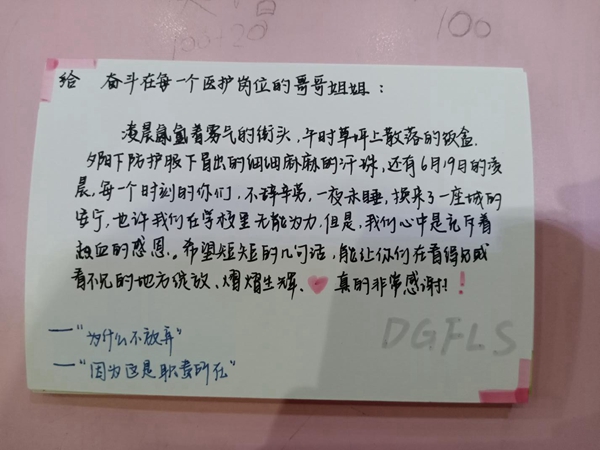 100+20
100
给 奋斗在每一个医护岗位的哥哥姐姐：
凌晨氤氲着雾气的街头，午时草坪上散落的饭盒.
夕阳下防护服下冒出的细细麻麻的汗珠，还有6月19日的凌
晨，每一个时刻的你们，不辞辛劳，一夜未睡，换来了一座城的
安宁，也许我们在学校里无能为力，但是，我们心中是充斥着
热血的感恩。希望短短的几句话，能让你们在看得见或
看不见的地方绽放、熠熠生辉、♥ 真的非常感谢！！
DGFLS
—“为什么不放弃”
—“因为这是职责所在”